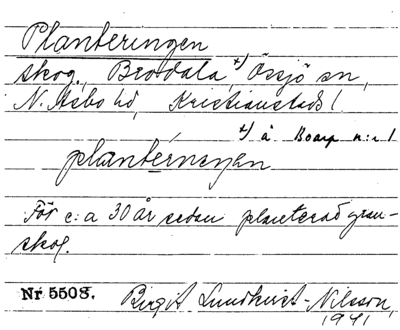 Planteringen
skog, Brodala, +) Össjö sn,
N. Åsbo hd, Kristianstads l.
+) å Boarp n:r 1
planteringen
För c:a 30 år sedan planterad gran-
skog.
Nr 5508. Birgit Lundkvist-Nilsson,
1941